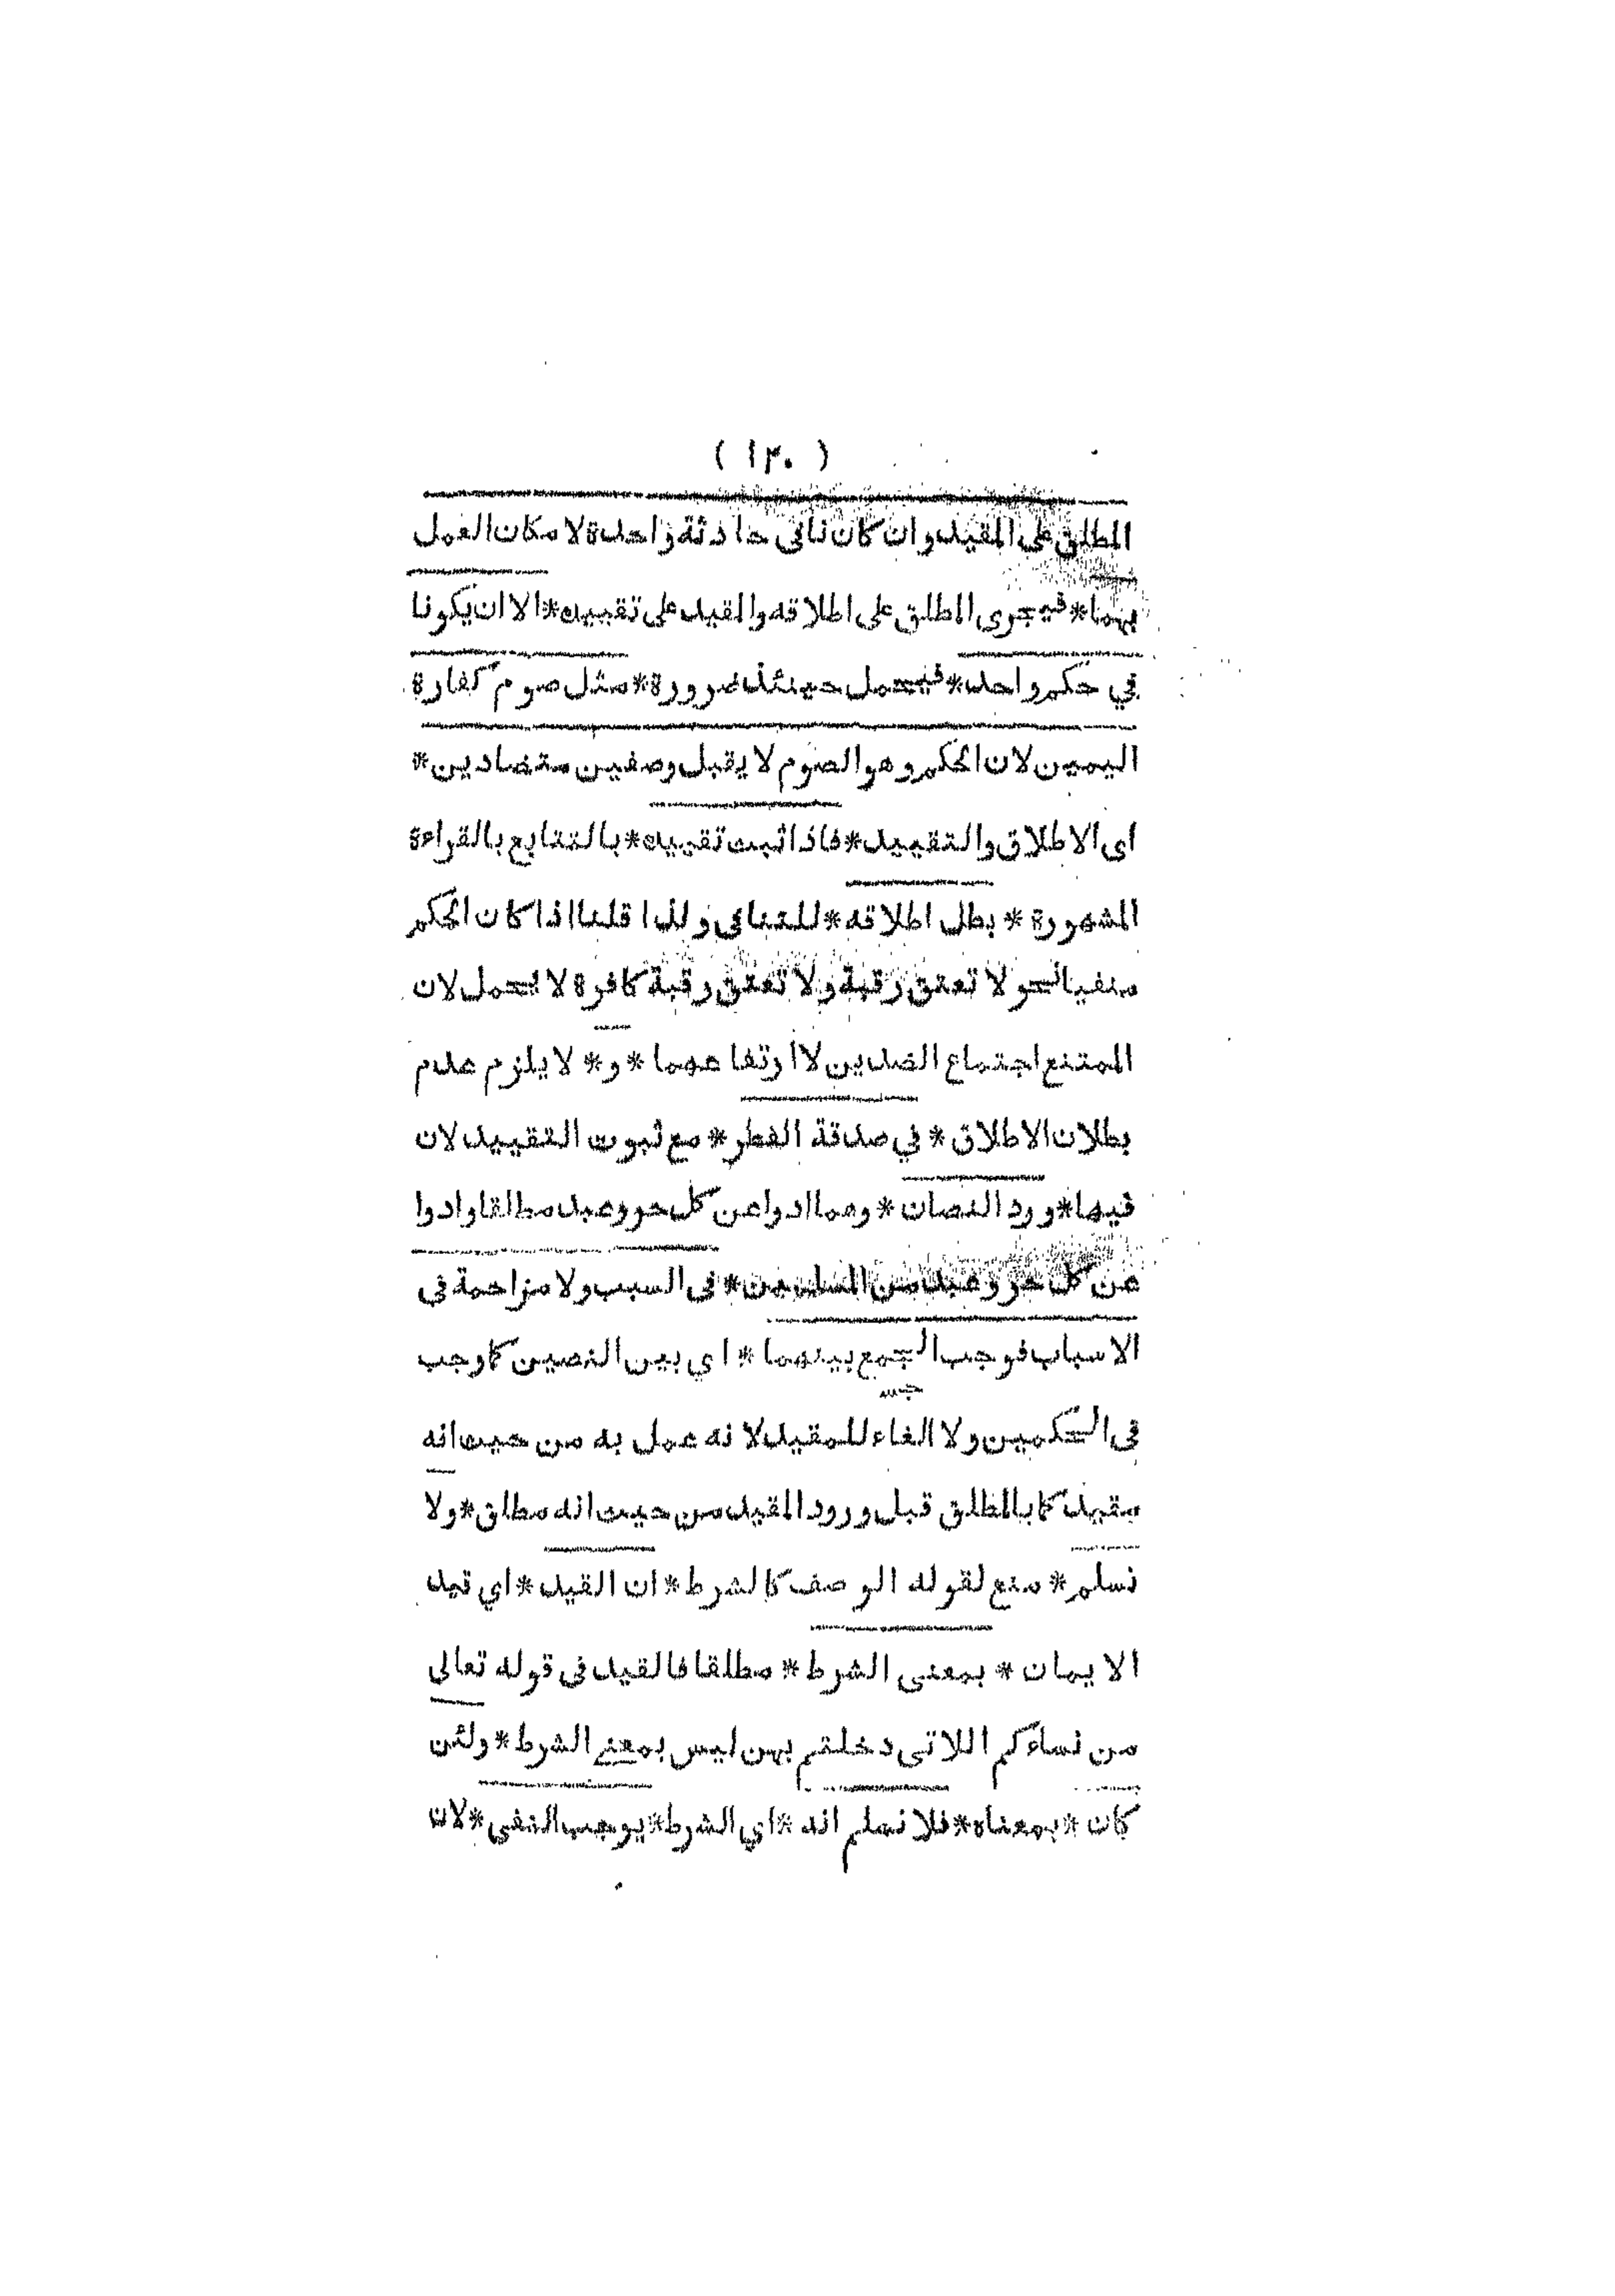 ( ١٣٠ )
المطلق على المقيد وان كانا فى حادثة واحدة لامكان العمل
بهما * فيجرى المطلق على اطلاقه والمقيد على تقييده * الا ان يكونا
في حكم واحد * فيحمل حينئذ ضرورة * مثل صوم كفارة
اليمين لان الحكم وهو الصوم لا يقبل وصفين متضادين *
اى الاطلاق والتقييد * فاذا ثبت تقييده * بالتتابع بالقراءة
المشهورة * بطل اطلاقه * للتنافى ولذا قلنا اذا كان الحكم
منفيا نحو لا تعتق رقبة ولا تعتق رقبة كافرة لا تحمل لان
الممتنع اجتماع الضدين لا ارتفاعهما * و * لا يلزم عدم
بطلان الاطلاق * في صدقة الفطر * مع ثبوت التقييد لان
فيها * ورد النصان * وهما ادوا عن كل حر وعبد مطلقا وادوا
عن كل حر وعبد من المسلمين * فى السبب ولا مزاحمة فى
الاسباب فوجب الجمع بينهما * اي بين النصين كما وجب
فى الحكمين ولا الغاء للمقيد لانه عمل به من حيث انه
مقيد كما بالمطلق قبل ورود المقيد من حيث انه مطلق * ولا
نسلم * منع لقوله الوصف كالشرط * ان القيد * اي قيد
الايمان * بمعنى الشرط * مطلقا فالقيد فى قوله تعالى
من نساءكم اللاتى دخلتم بهن ليس بمعنى الشرط * ولئن
كان * بمعناه * فلا نسلم انه * اي الشرط * يوجب النفى * لان